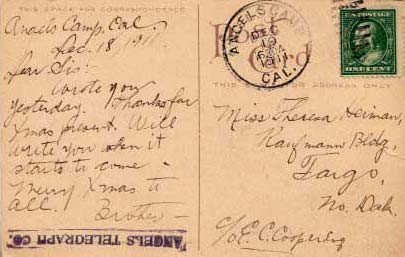 THIS SPACE FOR CORRESPONDENCE
Angels Camp, Cal.
Dec. 18/1911.
Dear Sis:-
Wrote you
yesterday. Thanks for
Xmas present. Will
write you when it
starts to come -
Merry Xmas to
all.
Brother -
ANGELS TELEGRAPH CO.
Post
Card
ANGELS CAMP
DEC
19
1911
CAL.
U.S. POSTAGE
ONE CENT
THIS SIDE FOR ADDRESS ONLY
Miss Theresa Heiman,
Kaufmann Bldg,
Fargo,
No. Dak.
c/o E. C. Cooper Esq